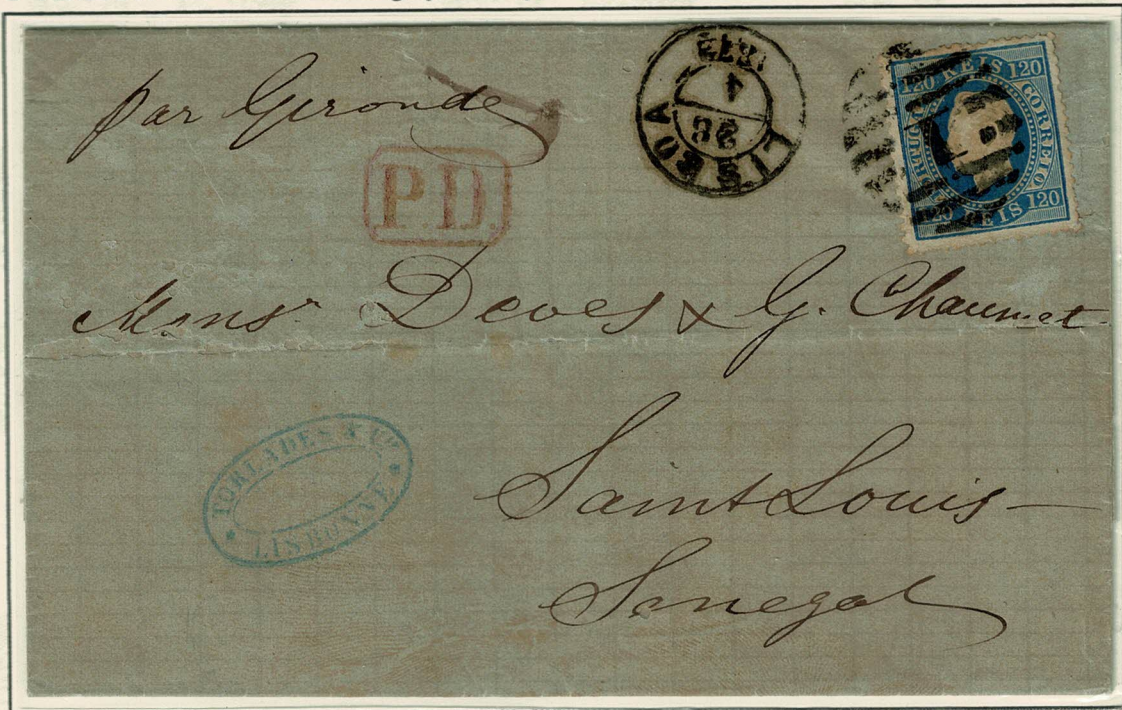 par Gironde
P.D.
LISBOA
28
4
1873
120 REIS 120
CORREIO
120 REIS 120
Mons.r Deves & G. Chaumet
TORLADES & Co
LISBONNE
Saint Louis —
Senegal